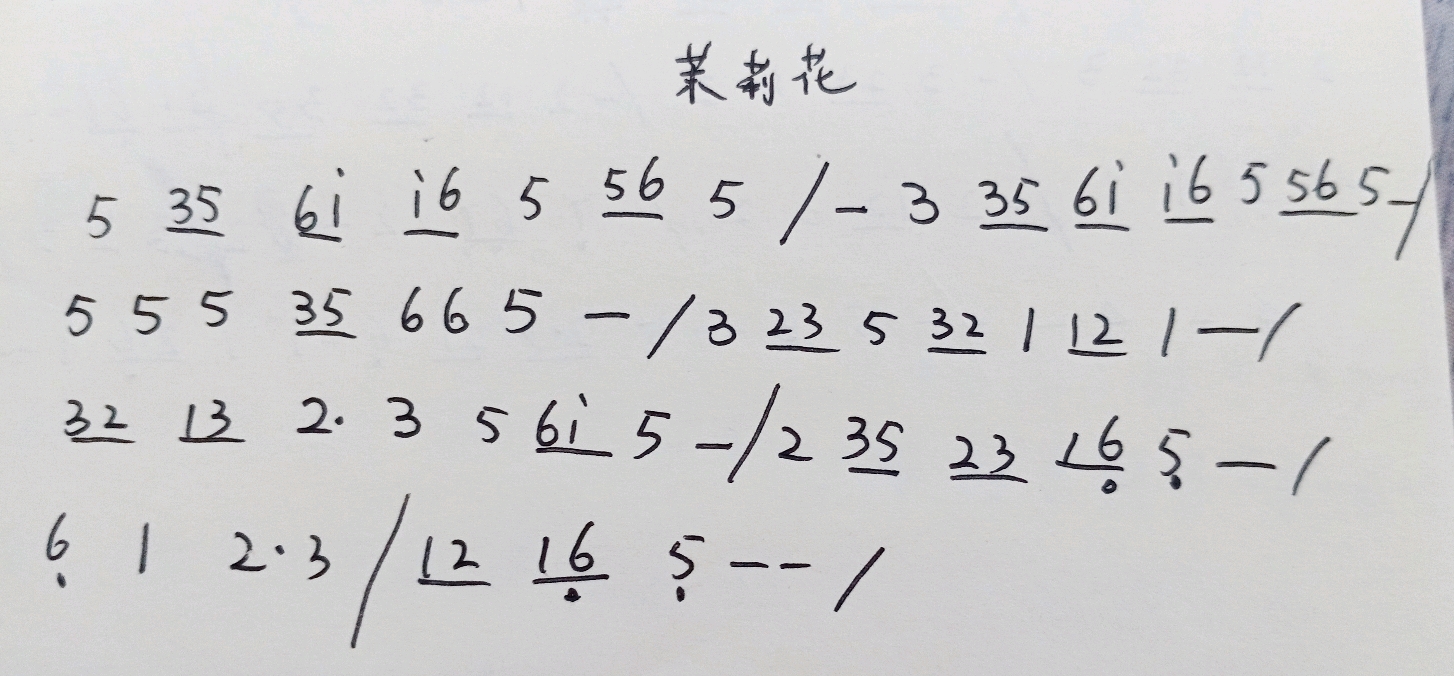 茉莉花
5 35 6i i6 5 56 5 / - 3 35 6i i6 5 56 5 - /
5 5 5 35 6 6 5 - / 3 23 5 32 1 12 1 - /
32 13 2. 3 5 6i 5 - / 2 35 23 16̣ 5̣ - /
6̣ 1 2·3 / 12 16̣ 5̣ - - /